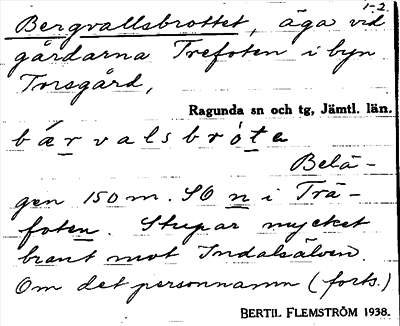 1-2.
Bergvallsbrottet, äga vid
gårdarna Trefoten i byn
Torsgård,
Ragunda sn och tg, Jämtl. län.
bærvalsbróte
Belä-
gen 150 m. SO n i Trä-
foten. Stupar mycket
brant mot Indalsälven.
Om det personnamn (forts.)
BERTIL FLEMSTRÖM 1938.